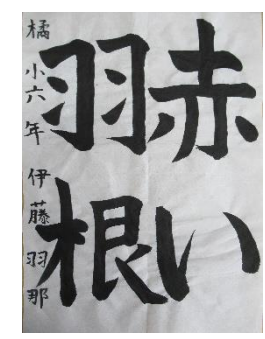 赤い
羽根
橘小六年 伊藤羽那